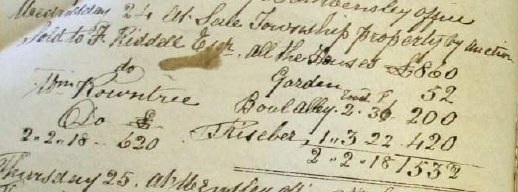 Wednesday 24 At Sale Township property by auction
Sold to F Kiddell Esqr. all the Houses £860
do Garden 52
Wm Rowntree Bowl Alley 2 - 36 200
Do £ 1 " 3 22 420
2 " 2 " 18 - 620 2 " 2 " 18 1532
Thursday 25. At